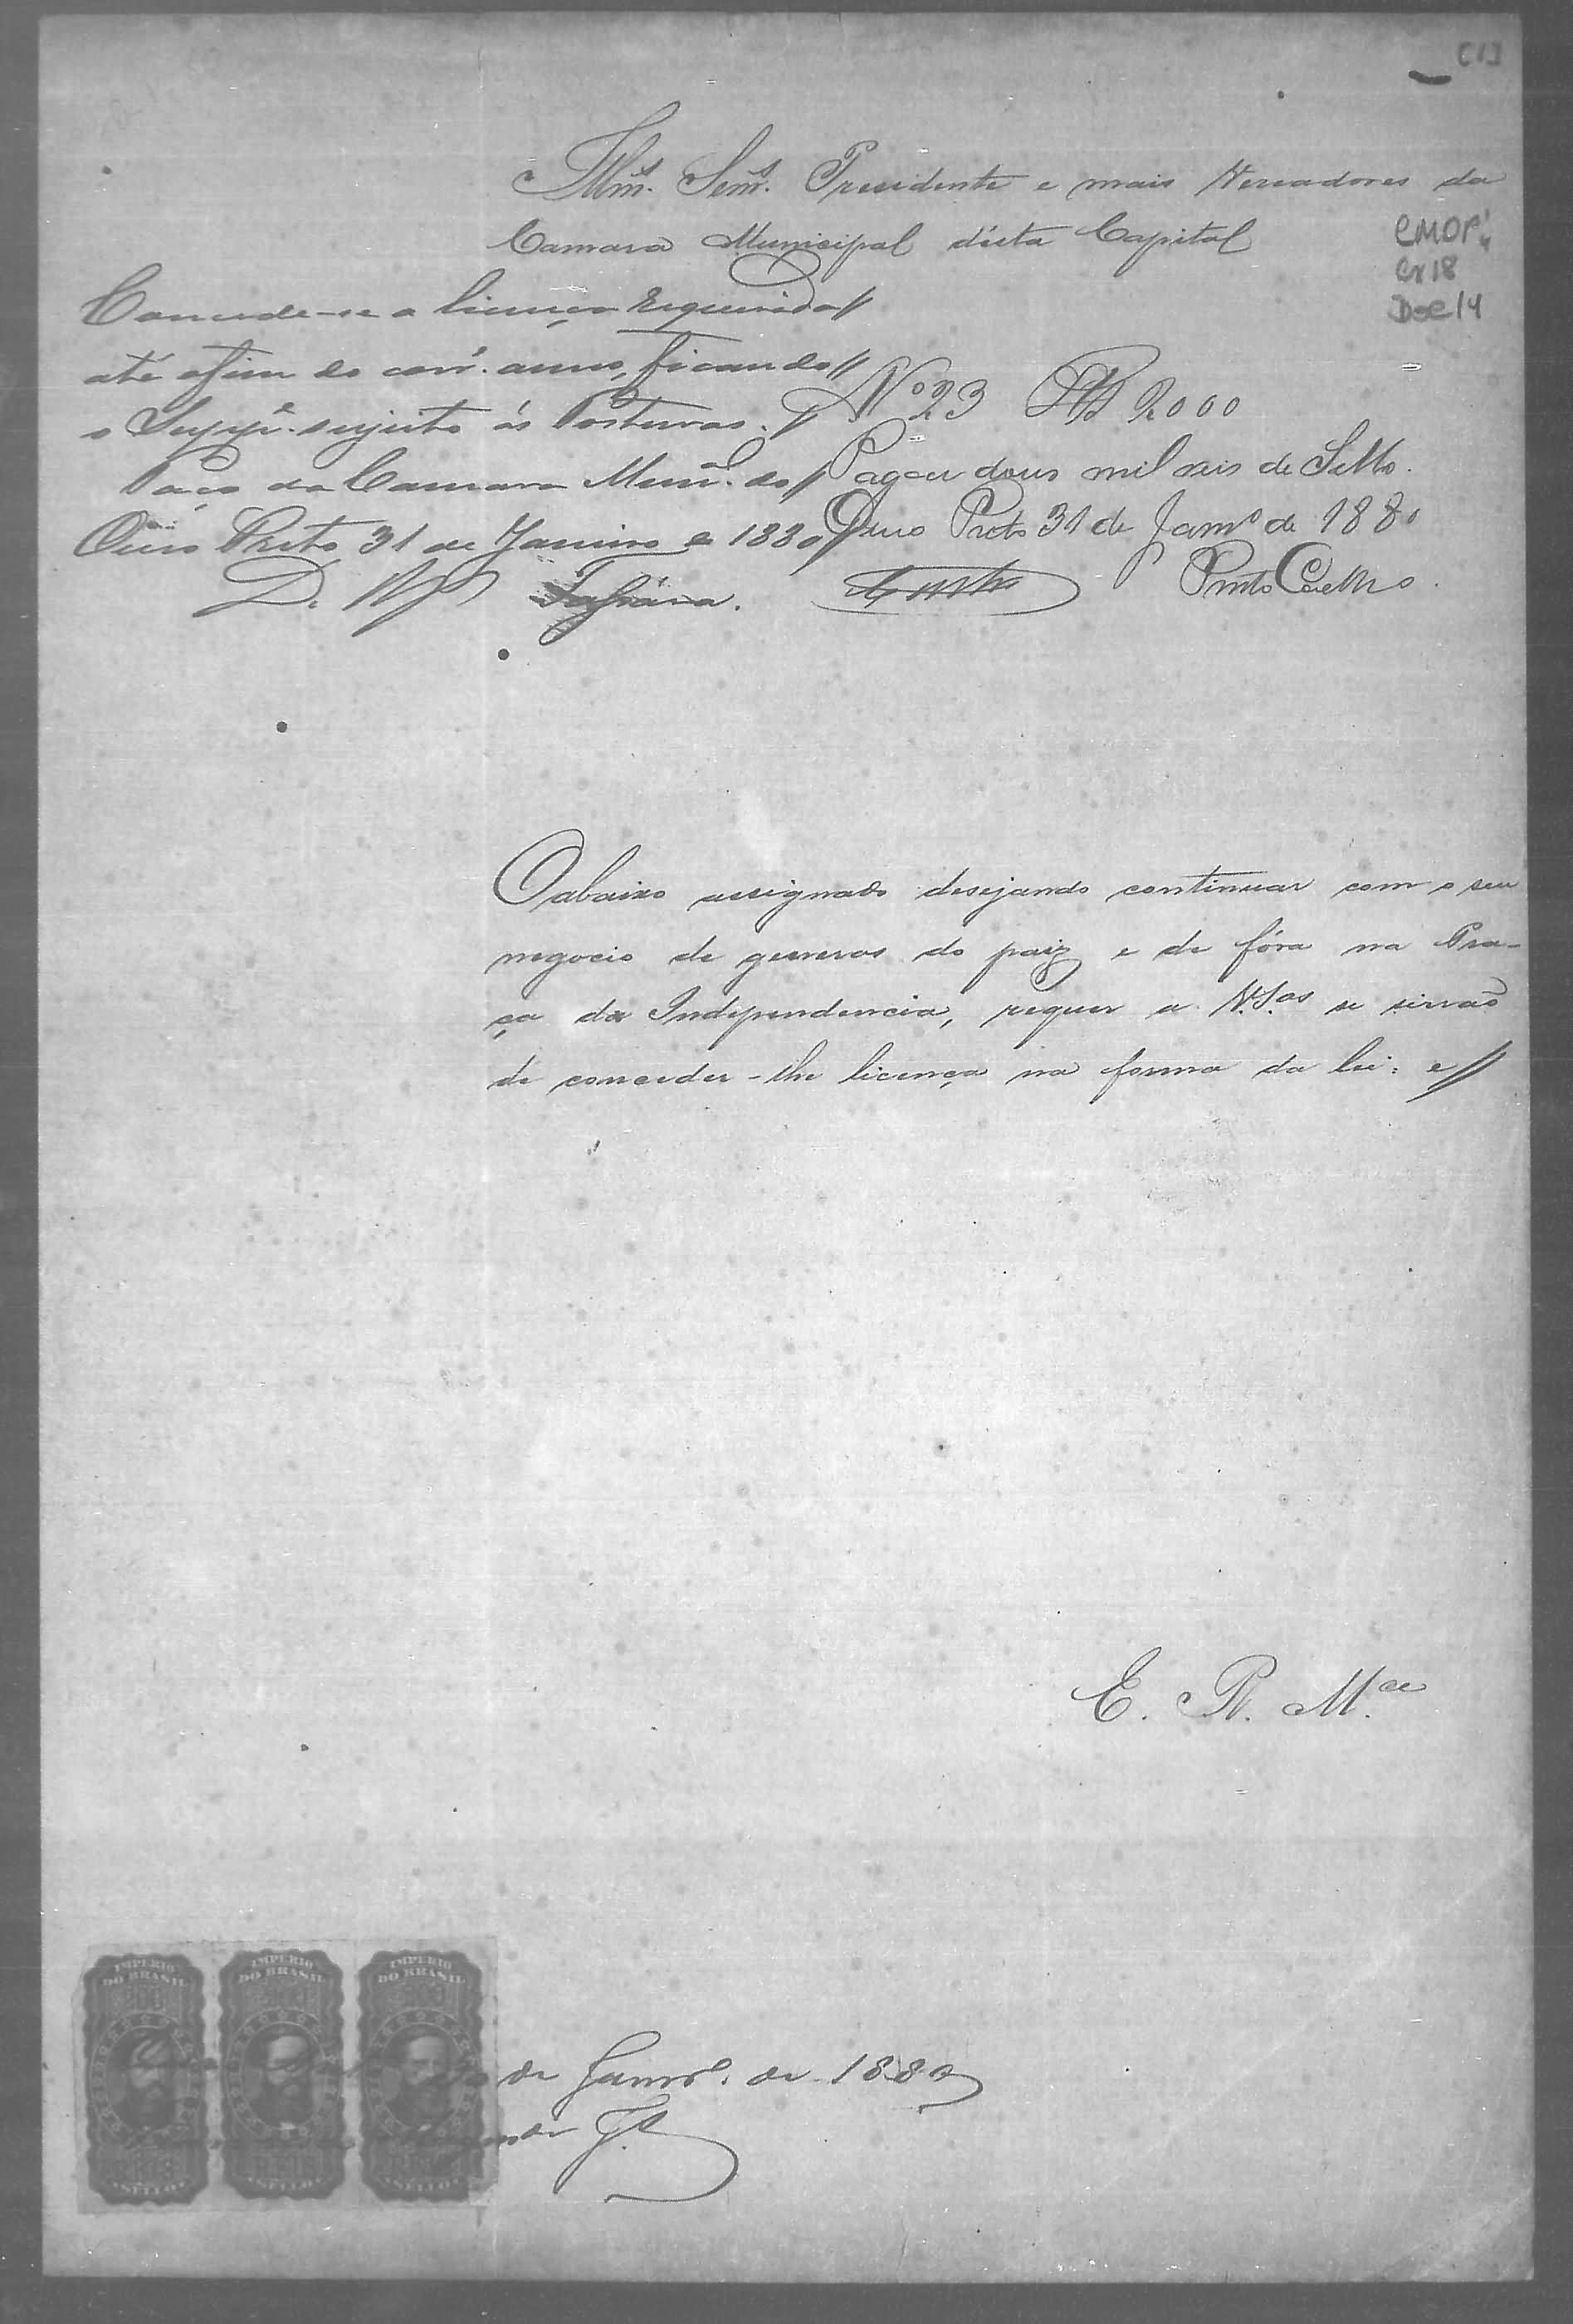 [1]
Illmos. Senrs. Presidente e mais Vereadores da
Camara Municipal d'esta Capital
CMOP
Cx 18
Doc 14
Concede-se a licença requerida
até o fim do corre. anno, ficando
o Suppe. sujeito ás Posturas.
Paço da Camara Munal. do
Ouro Preto 31 de Janeiro de 1880
Nº 23 Rs 2000
Pagou dous mil reis de Sello.
Ouro Preto 31 de Janro de 1880
Pinto Coelho.
O abaixo assignado desejando continuar com o seu
negocio de generos do paiz e de fóra na Pra-
ça da Independencia, requer a V.Sas se sirvão
de conceder-lhe licença na forma da lei: e
E. R. Mce
IMPERIO DO BRASIL
IMPERIO DO BRASIL
IMPERIO DO BRASIL
SELLO
SELLO
SELLO
de Janro. de 1880